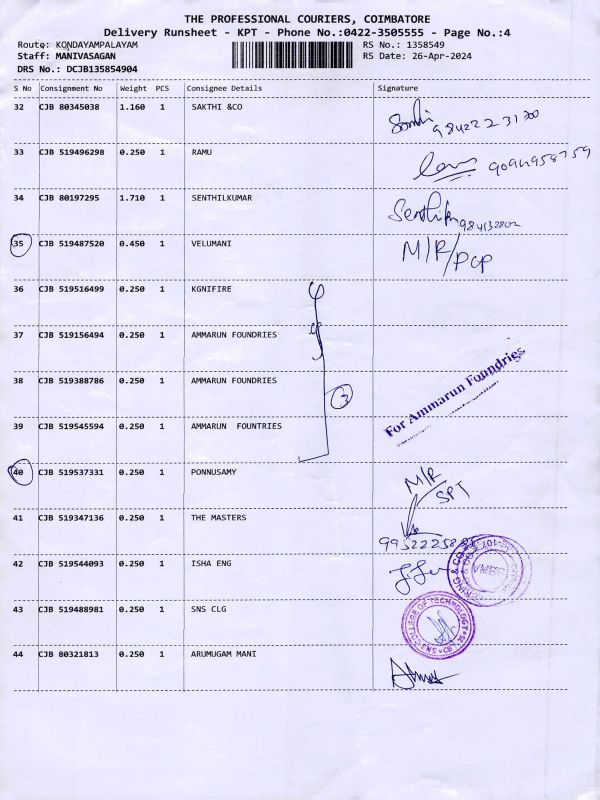 THE PROFESSIONAL COURIERS, COIMBATORE
Delivery Runsheet - KPT - Phone No.:0422-3505555 - Page No.:4
Route: KONDAYAMPALAYAM RS No.: 1358549
Staff: MANIVASAGAN RS Date: 26-Apr-2024
DRS No.: DCJB135854904
S No Consignment No Weight PCS Consignee Details Signature
32 CJB 80345038 1.160 1 SAKTHI &CO
33 CJB 519496298 0.250 1 RAMU
34 CJB 80197295 1.710 1 SENTHILKUMAR
35 CJB 519487520 0.450 1 VELUMANI M/R/PCP
36 CJB 519516499 0.250 1 KGNIFIRE
37 CJB 519156494 0.250 1 AMMARUN FOUNDRIES
38 CJB 519388786 0.250 1 AMMARUN FOUNDRIES
3
For Ammarun Foundries
39 CJB 519545594 0.250 1 AMMARUN FOUNTRIES
40 CJB 519537331 0.250 1 PONNUSAMY M/R
SPT
41 CJB 519347136 0.250 1 THE MASTERS
42 CJB 519544093 0.250 1 ISHA ENG
43 CJB 519488981 0.250 1 SNS CLG
COLLEGE OF TECHNOLOGY
44 CJB 80321813 0.250 1 ARUMUGAM MANI